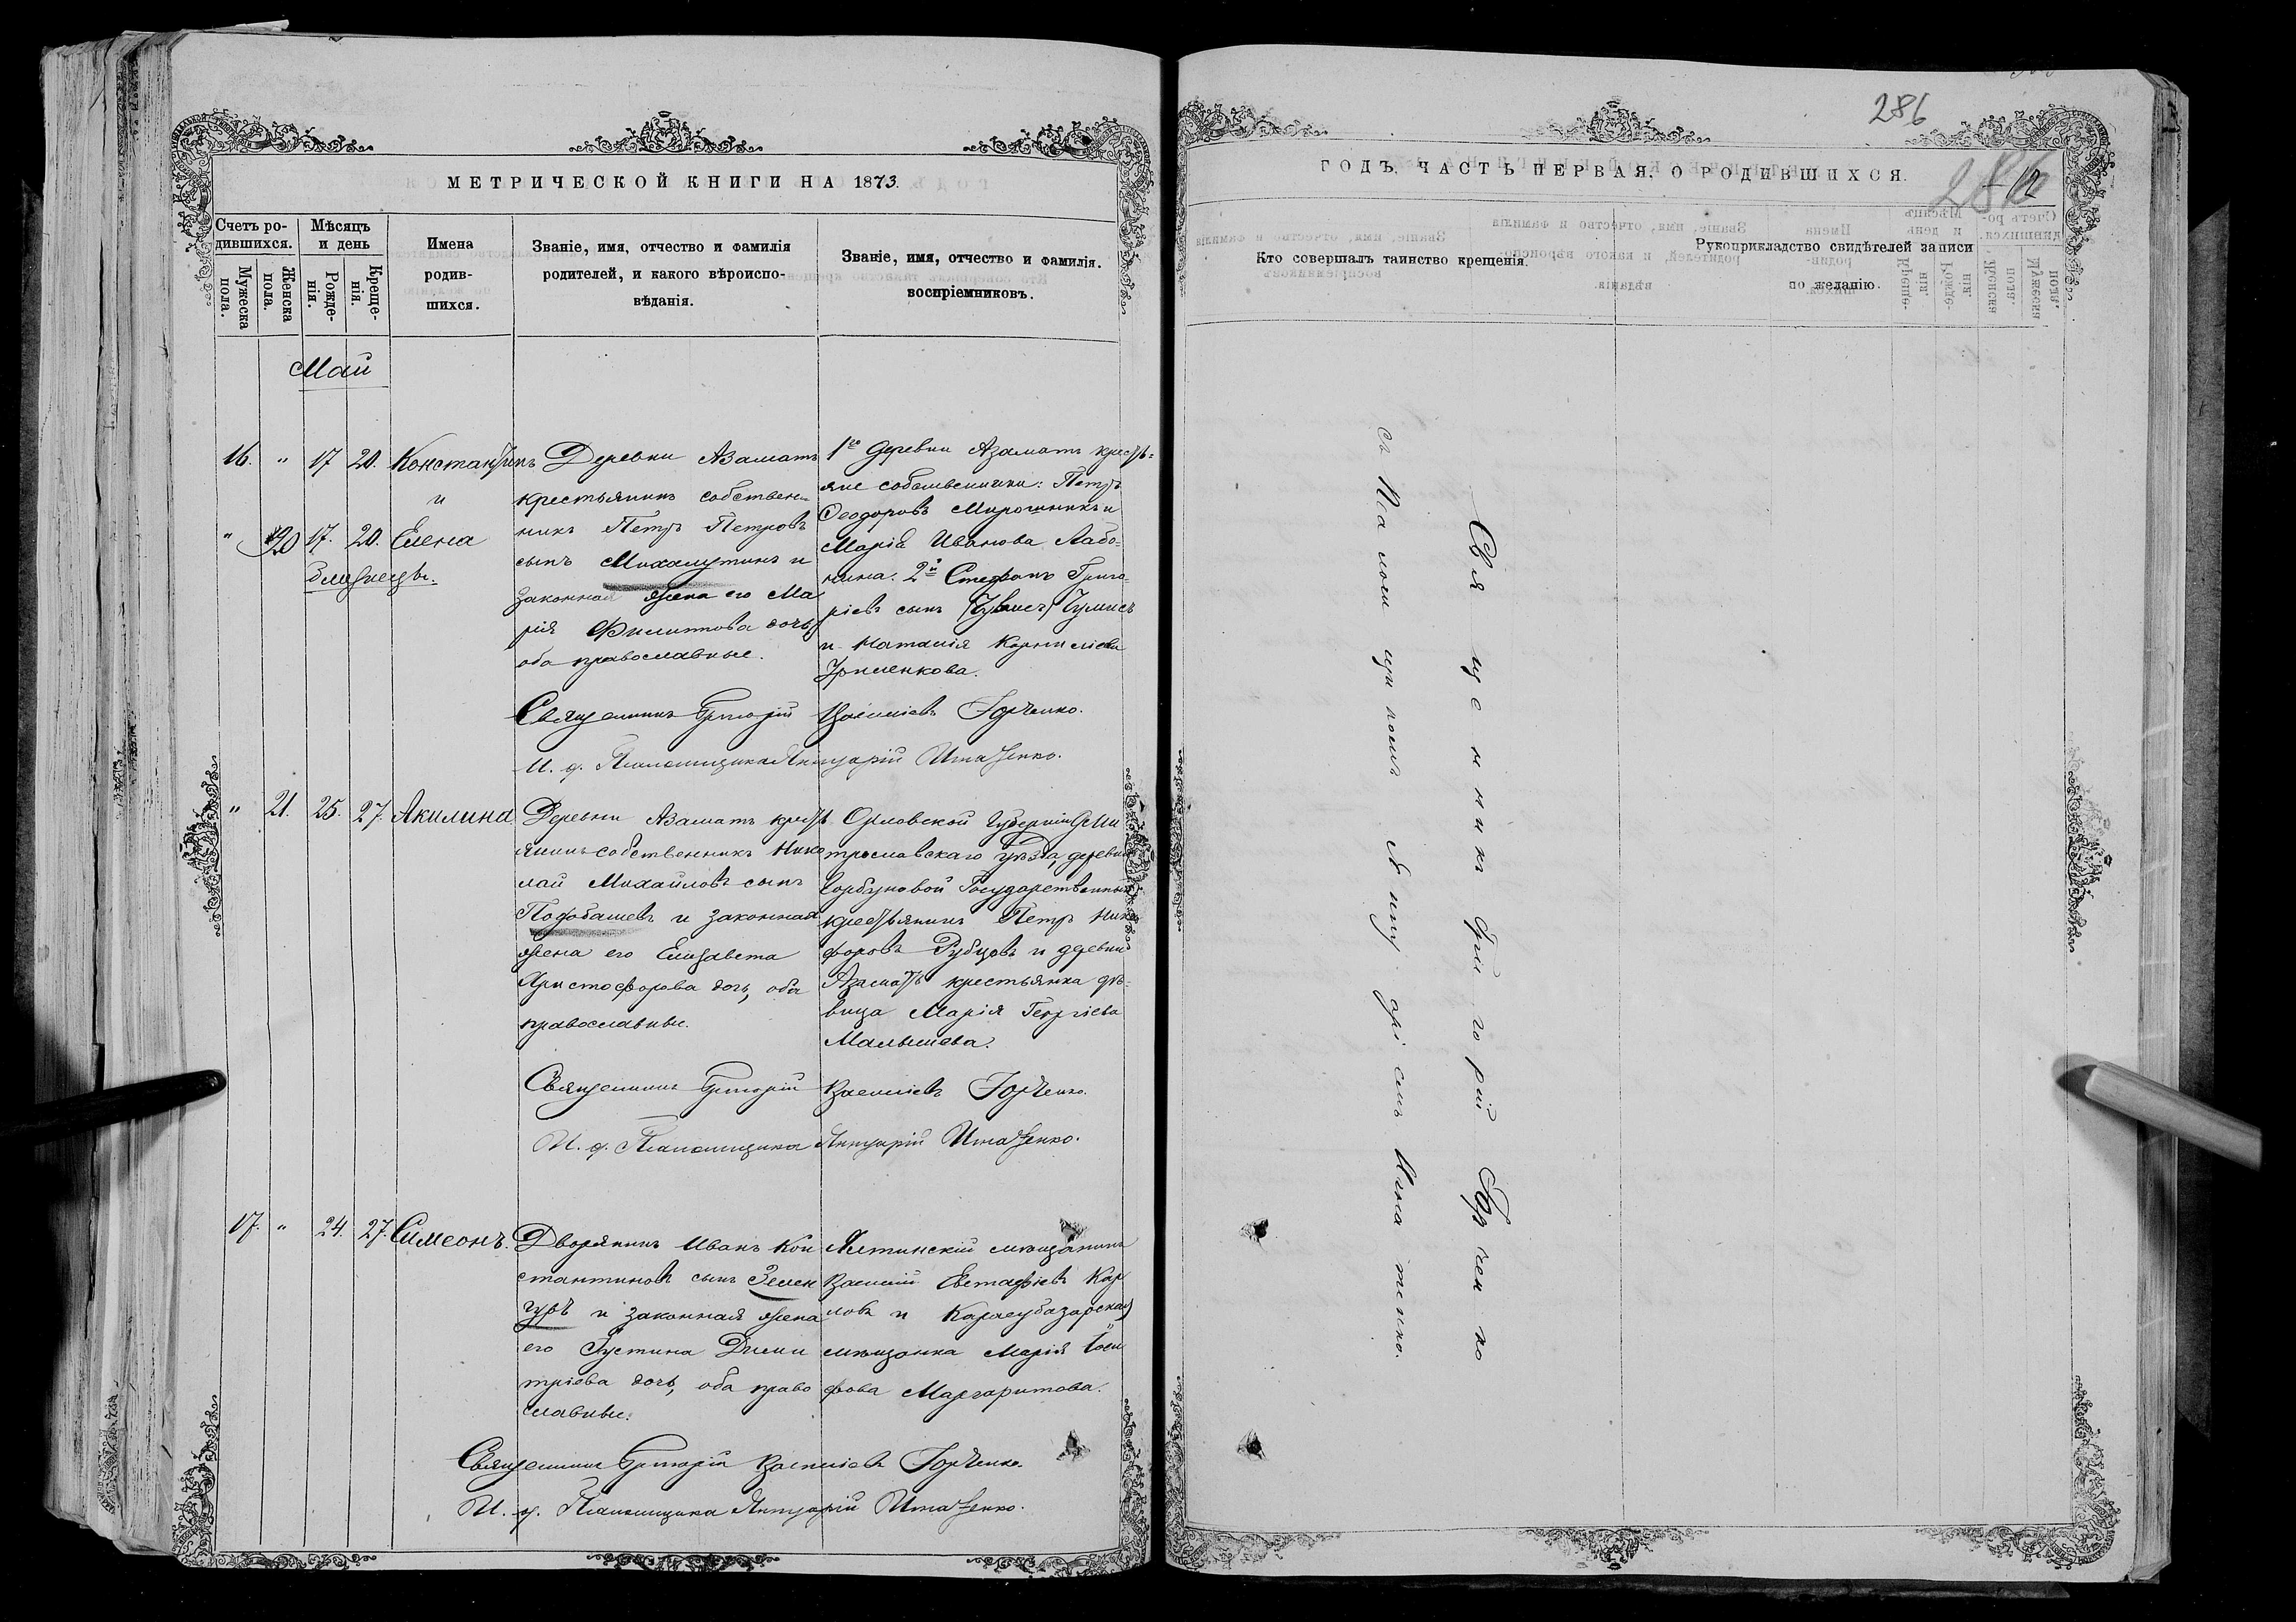 МЕТРИЧЕСКОЙ КНИГИ НА 1873.
Счетъ ро-
дившихся.
Мужеска пола.
Женска пола.
Мѣсяцъ
и день
Рожде-
нія.
Креще-
нія.
Имена
родив-
шихся.
Званіе, имя, отчество и фамилія
родителей, и какого вѣроиспо-
вѣданія.
Званіе, имя, отчество и фамилія.
воспріемниковъ.
Май
16. " 17 20. Константинъ
и
" 20 17. 20. Елена
близнецы.
Деревни Азаматъ
крестьянинъ собствен-
никъ Петръ Петровъ
сынъ Михалутинъ и
законная жена его Ма
рія Филиппова дочь,
оба православные.
1го Деревни Азаматъ кресть=
яне собственники: Петръ
Ѳеодоровъ Мирошникъ и
Марія Иванова Лабо-
нина. 2й Стефанъ Григо-
ріевъ сынъ
и Наталія Корниліева
Священникъ Григорій Василіевъ Горченко.
И. д. Псаломщика Януарій Игнатенко.
" 21. 25. 27. Акилина
Деревни Азаматъ кресть
янинъ собственникъ Нико
лай Михайловъ сынъ
Подобашевъ и законная
жена его Елизавета
Христофорова дочь, оба
православные.
Орловской Губерніи Дми
тровскаго уѣзда, деревни
Горбуновой Государственный
крестьянинъ Петръ Ники
форовъ Рубцовъ и деревни
Азаматъ крестьянка дѣ-
вица Марія Георгіева
Малышева.
Священникъ Григорій Василіевъ Горченко.
И. д. Псаломщика Януарій Игнатенко.
17. " 24. 27. Симеонъ.
Дворянинъ Иванъ Кон
стантиновъ сынъ
и законная жена
его Іустина Дими
тріева дочь, оба право
славные.
Ялтинскій мѣщанинъ
Василій Евстафіевъ Кар
ловъ и Карасубазарская
мѣщанка Марія Іоси
фова Маргаритова.
Священникъ Григорій Василіевъ Горченко.
И. д. Псаломщика Януарій Игнатенко.
286
ГОДЪ, ЧАСТЬ ПЕРВАЯ, О РОДИВШИХСЯ.
286
Кто совершалъ таинство крещенія.
Рукоприкладство свидѣтелей записи
по желанію.
Священникъ Григорій Горченко
съ Псаломщикомъ Януаріемъ Игнатенко.